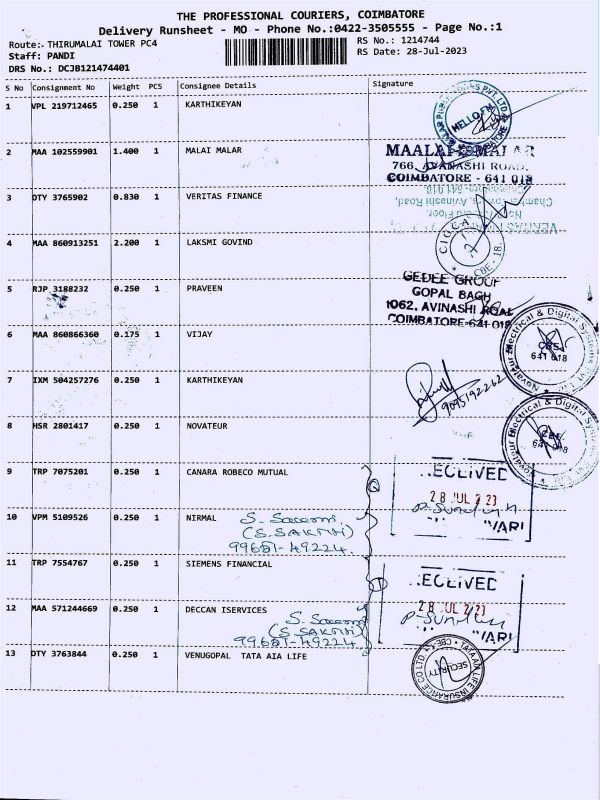 THE PROFESSIONAL COURIERS, COIMBATORE
Delivery Runsheet - MO - Phone No.:0422-3505555 - Page No.:1
Route: THIRUMALAI TOWER PC4
RS No.: 1214744
Staff: PANDI
RS Date: 28-Jul-2023
DRS No.: DCJB121474401
S No Consignment No Weight PCS Consignee Details Signature
1 VPL 219712465 0.250 1 KARTHIKEYAN
HELLO FM
2 MAA 102559901 1.400 1 MALAI MALAR
MAALAI MALAR
766, AVANASHI ROAD,
COIMBATORE - 641 018
3 DTY 3765902 0.830 1 VERITAS FINANCE
4 MAA 860913251 2.200 1 LAKSMI GOVIND
CBE - 18.
5 RJP 3188232 0.250 1 PRAVEEN
GEDEE GROUP
GOPAL BAGH
1062, AVINASHI ROAD
COIMBATORE-641 018
6 MAA 860866360 0.175 1 VIJAY
Novateur Electrical & Digital Systems Pvt Ltd
CBE
641 018
7 IXM 504257276 0.250 1 KARTHIKEYAN
9095192262
8 HSR 2801417 0.250 1 NOVATEUR
Novateur Electrical & Digital Systems
CBE
641 018
9 TRP 7075201 0.250 1 CANARA ROBECO MUTUAL
RECEIVED
28 JUL 23
10 VPM 5109526 0.250 1 NIRMAL
(S. SAKTHI)
99651-49224.
11 TRP 7554767 0.250 1 SIEMENS FINANCIAL
RECEIVED
28 JUL 23
12 MAA 571244669 0.250 1 DECCAN ISERVICES
(S. SAKTHI)
99651-49224.
13 DTY 3763844 0.250 1 VENUGOPAL TATA AIA LIFE
TATA AIA LIFE INSURANCE CO LTD
CBE
SECURITY